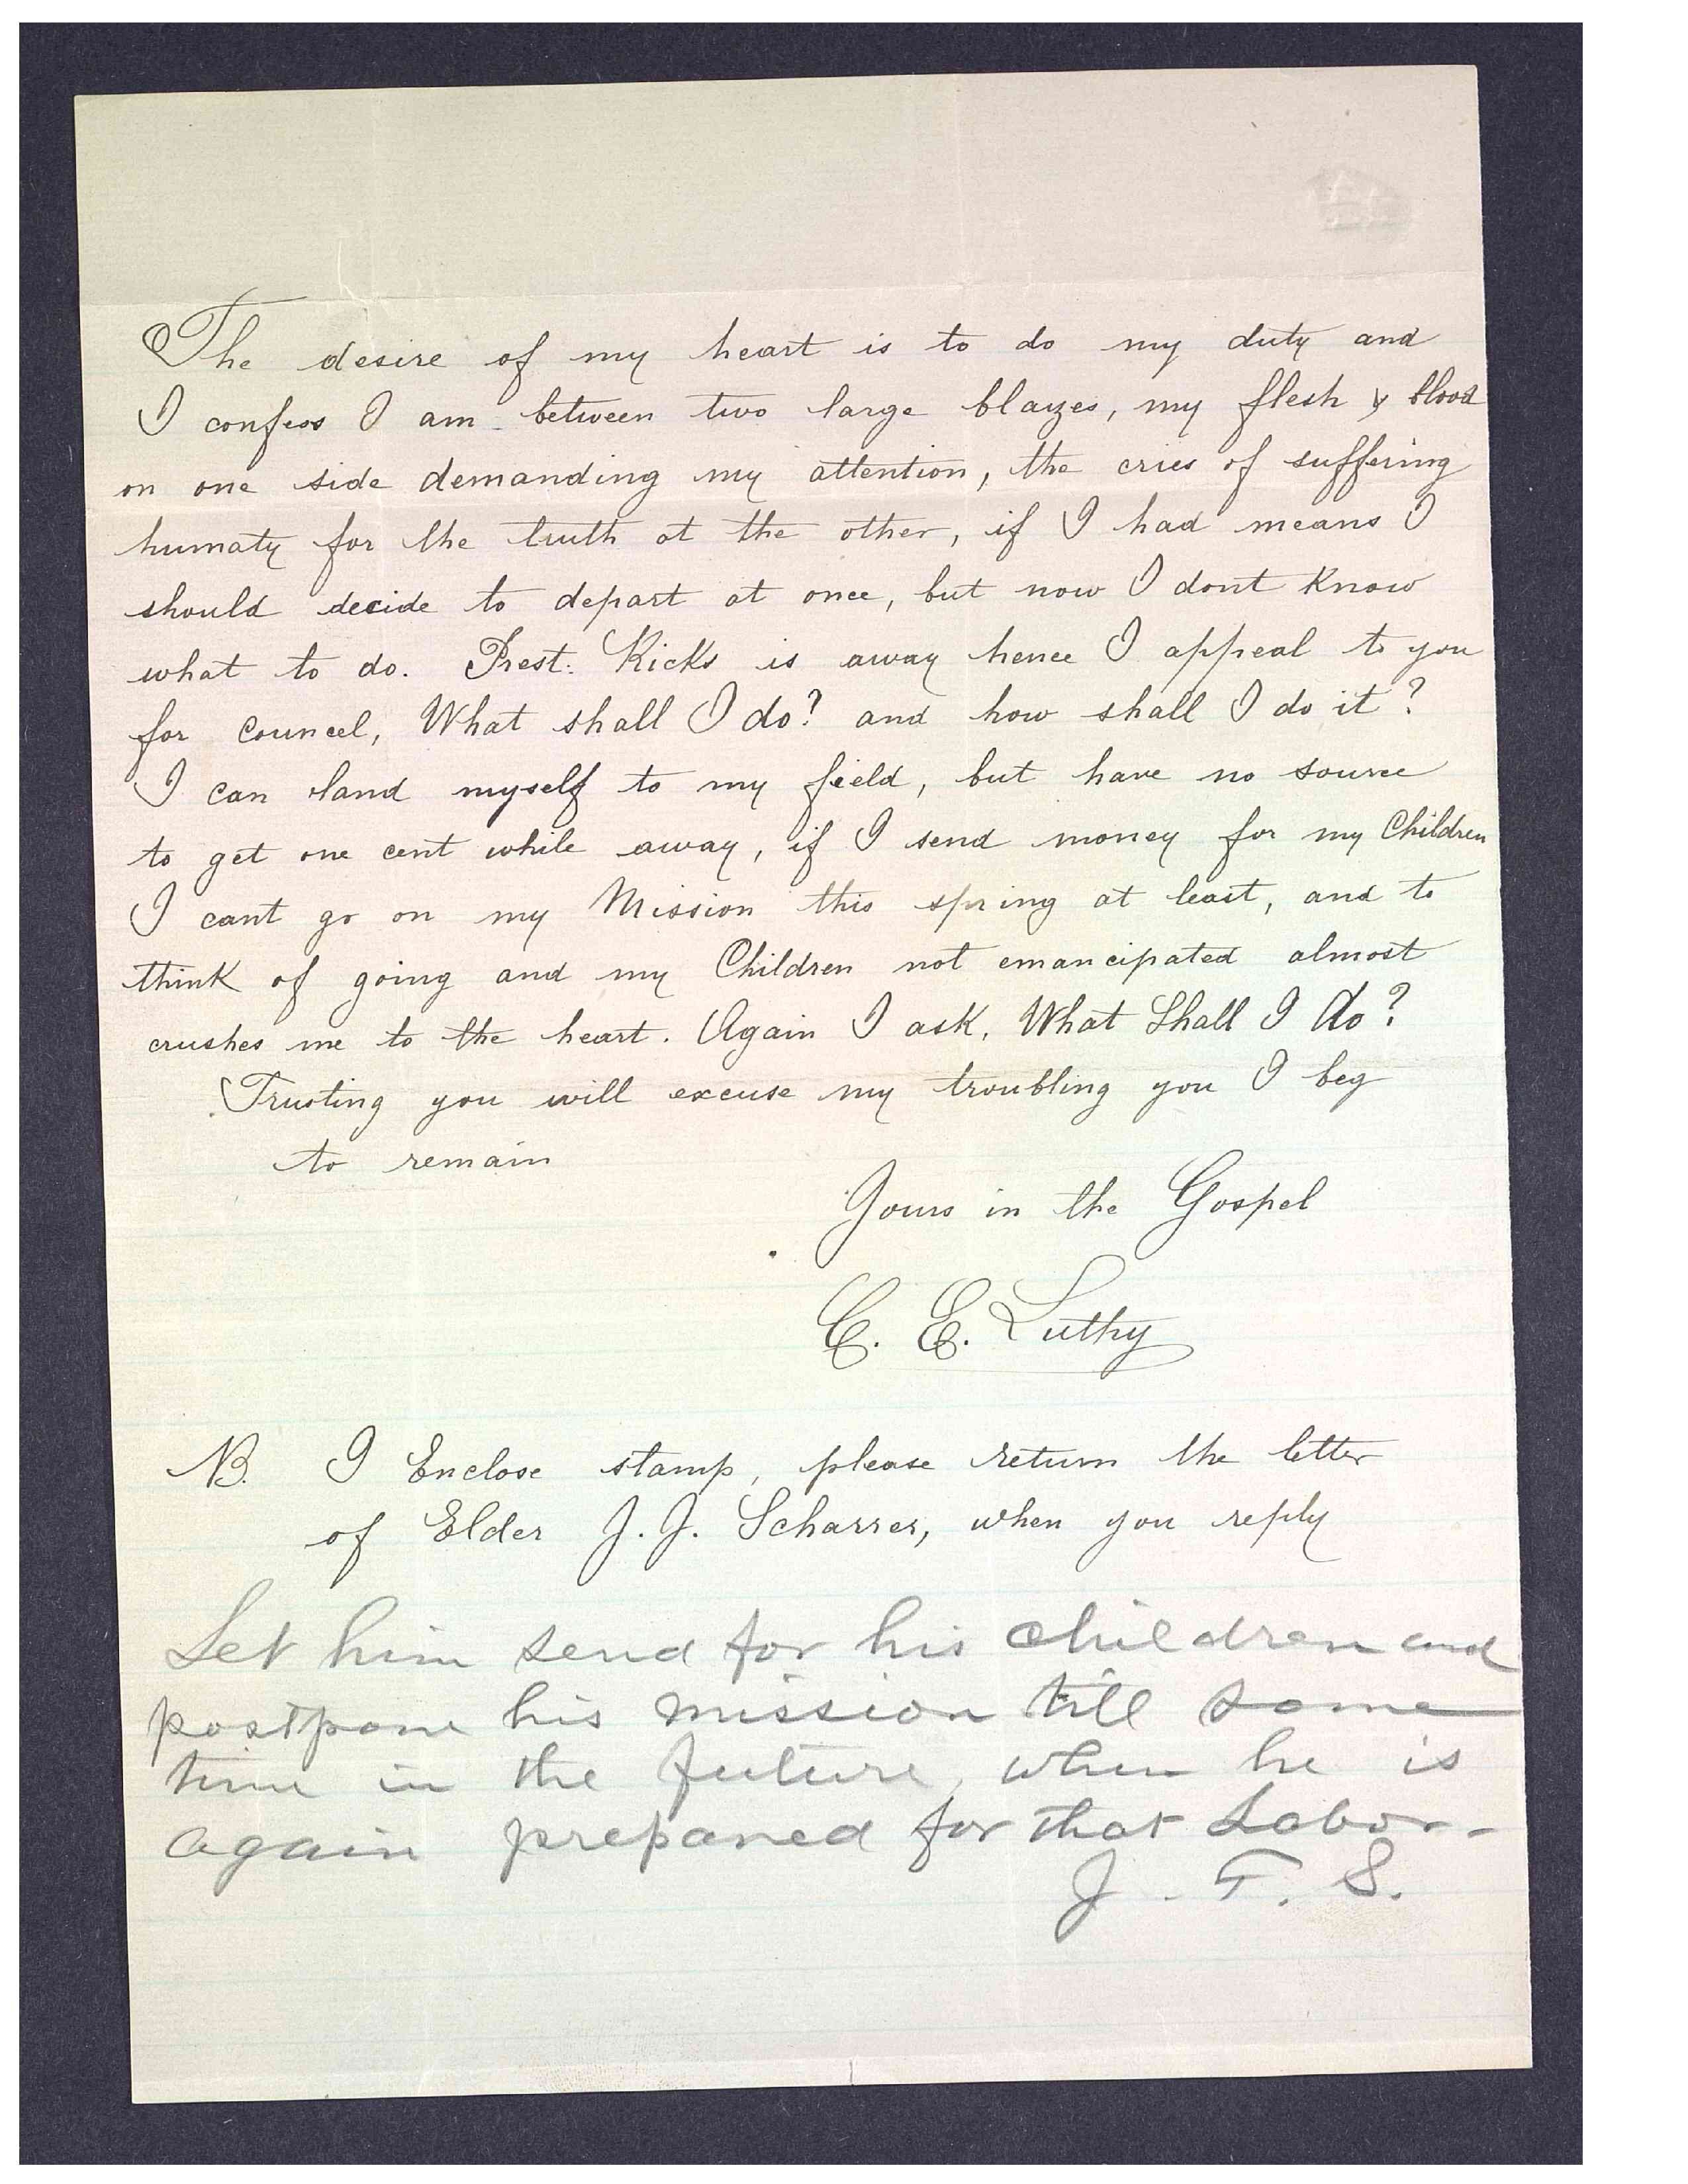 The desire of my heart is to do my duty and
I confess I am between two large blazes, my flesh & blood
on one side demanding my attention, the cries of suffering
humaty for the truth at the other, if I had means I
should decide to depart at once, but now I dont Know
what to do. Prest. Ricks is away hence I appeal to you
for councel, What shall I do? and how shall I do it?
I can land myself to my field, but have no source
to get one cent while away, if I send money for my Children
I cant go on my Mission this spring at least, and to
think of going and my Children not emancipated almost
crushes me to the heart. Again I ask, What Shall I do?
Trusting you will excuse my troubling you I beg
to remain
Yours in the Gospel
C. E. Luthy
NB. I Enclose stamp, please return the letter
of Elder J. J. Scharrer, when you reply
Let him send for his children and
postpone his mission till some
time in the future, when he is
again prepared for that Labor.-
J. F. S.